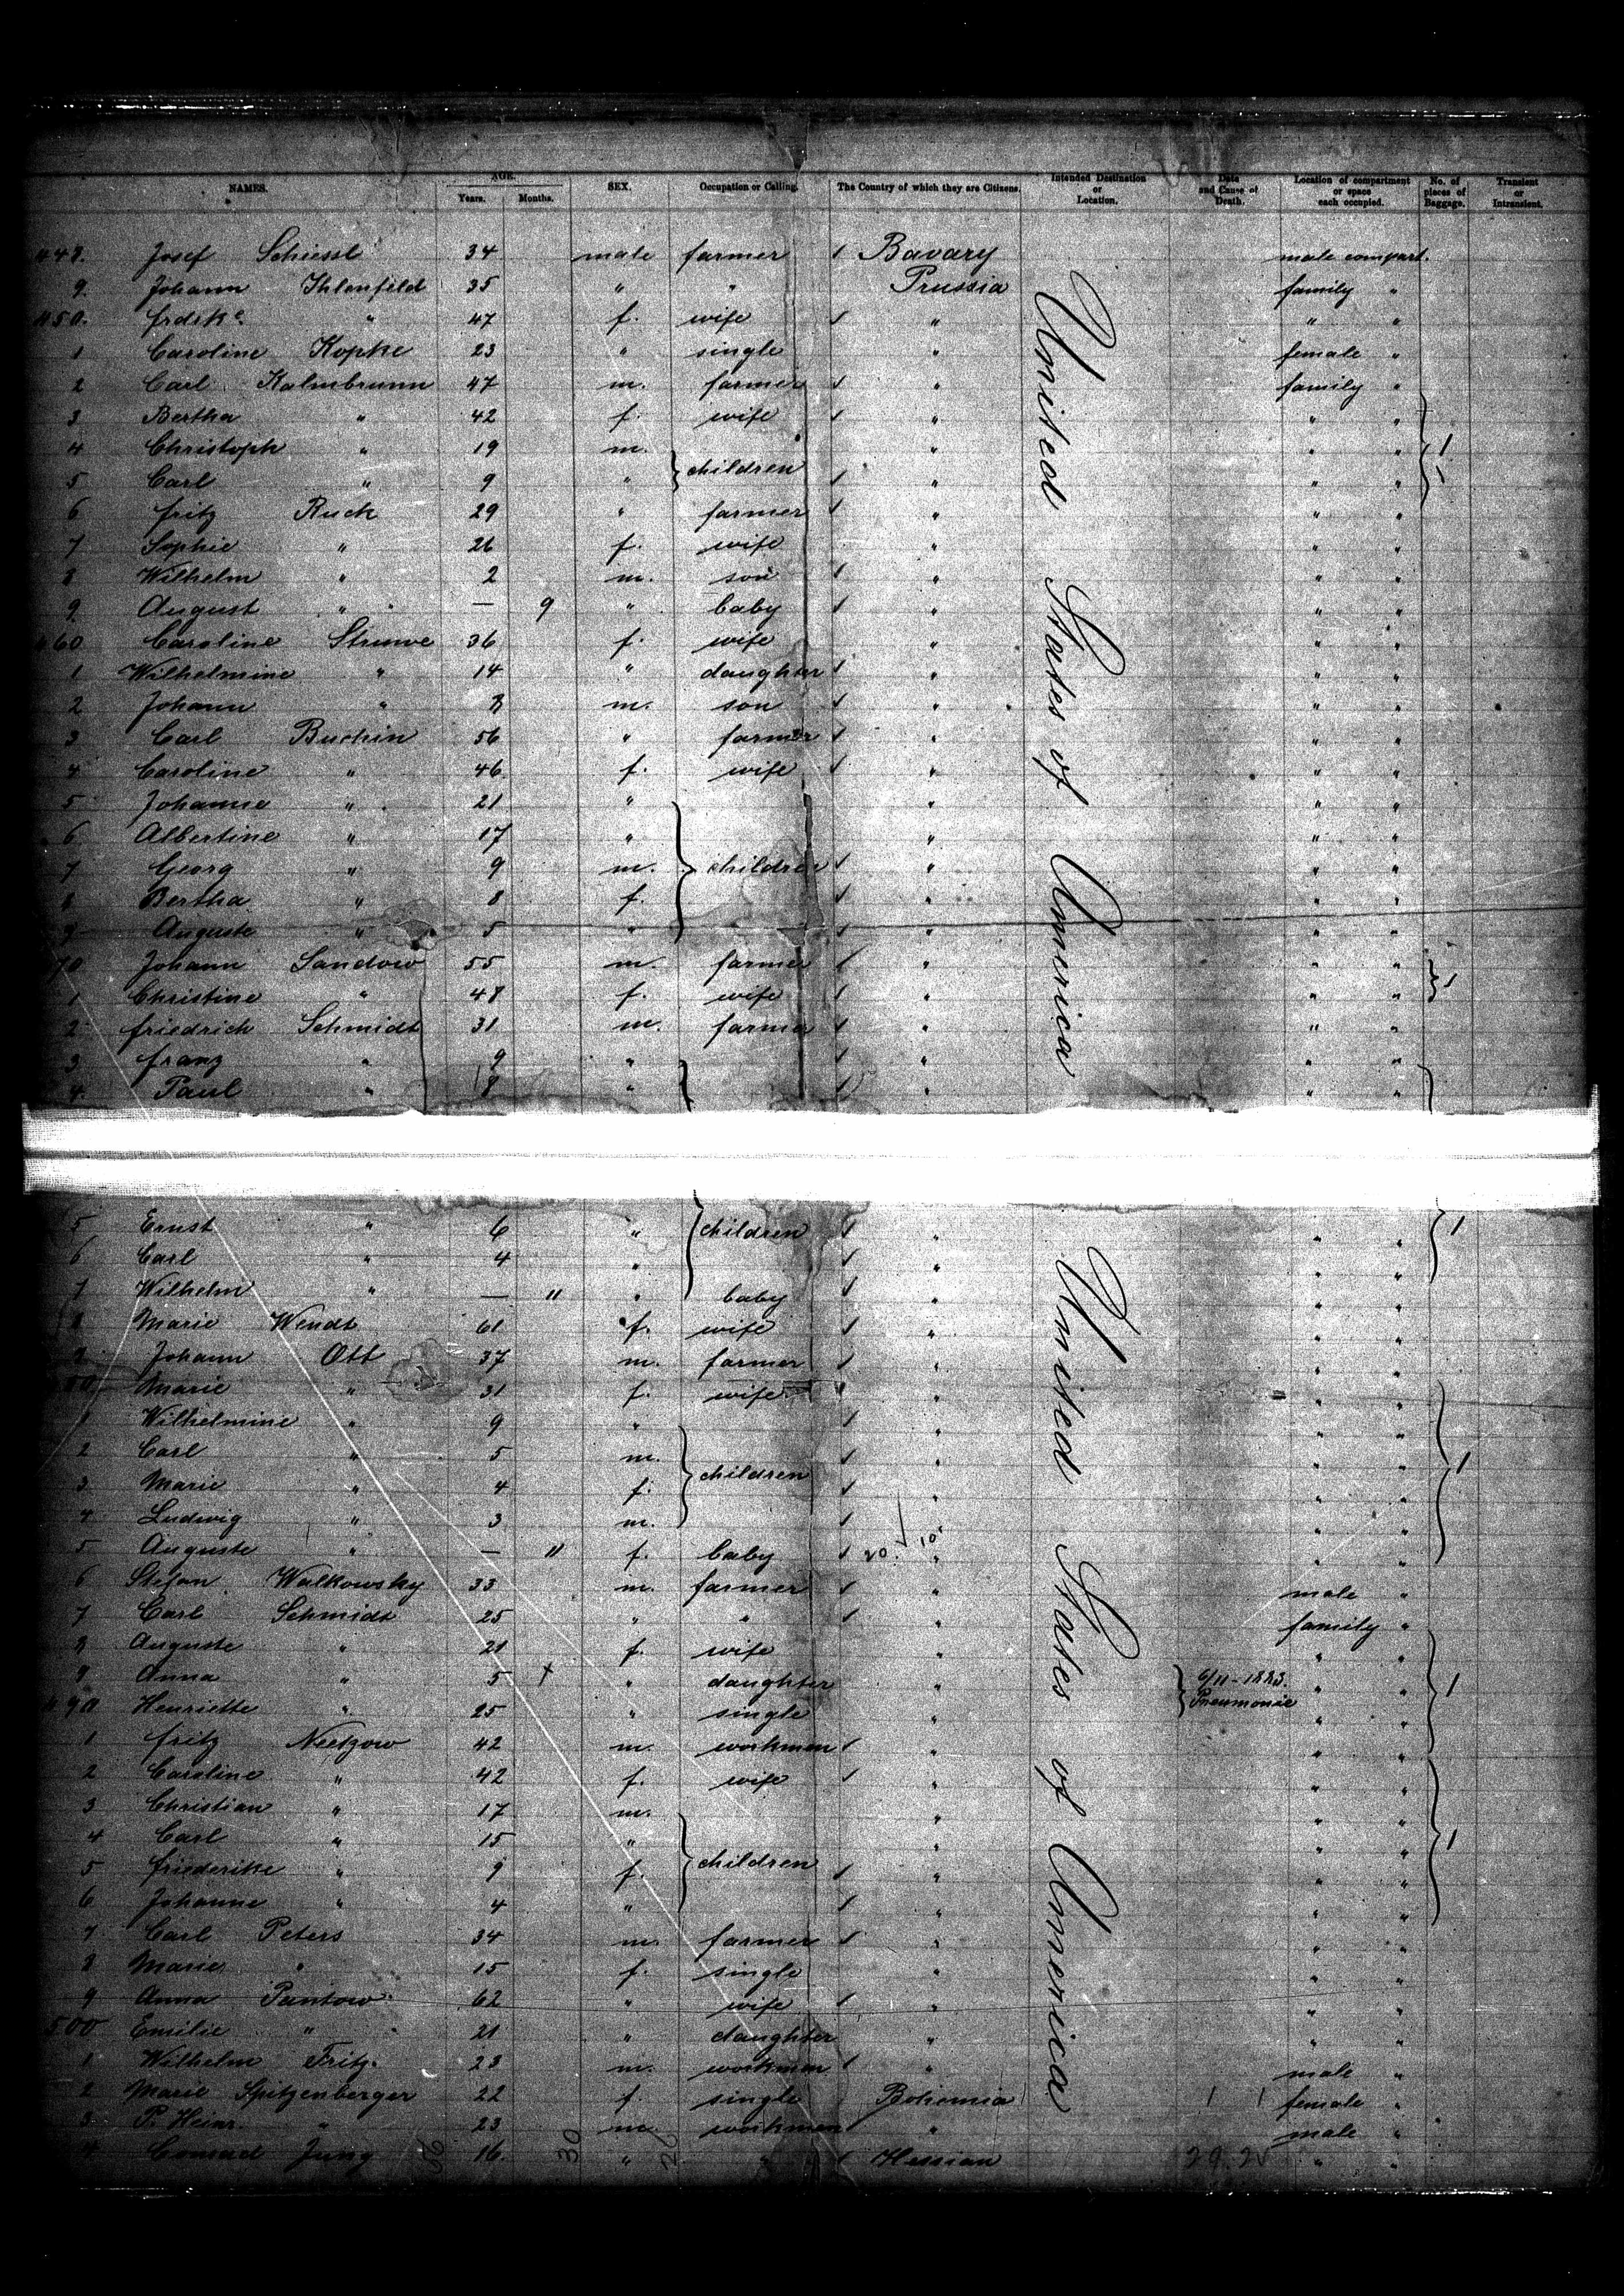 NAMES. AGE. Years. Months. SEX. Occupation or Calling. The Country of which they are Citizens. Intended Destination or Location. Date and Cause of Death. Location of compartment or space each occupied. No. of pieces of Baggage. Transient or Intransient.
448. Josef Schiessl 34 male farmer Bavary male compart.
9. Johann Ihlenfeld 35 " " Prussia family "
450. frdrke. " 47 f. wife " " "
1 Caroline Kopke 23 " single " female "
2 Carl Kalmbrunn 47 m. farmer " family "
3 Bertha " 42 f. wife " " "
4 Christoph " 19 m. children " " " 1
5 Carl " 9 " " " "
6 fritz Ruck 29 " farmer " " "
7 Sophie " 26 f. wife " " "
8 Wilhelm " 2 m. son " " "
9 August " — 9 " baby " " "
460 Caroline Struwe 36 f. wife " " "
1 Wilhelmine " 14 " daughter " " "
2 Johann " m. son " " "
3 Carl Buchin 56 " farmer " " "
4 Caroline " 46 f. wife " " "
5 Johanne " 21 " " " "
6 Albertine " 17 " " " "
7 Georg " 9 m. children " " "
8 Bertha " 8 f. " " "
9 Auguste " 5 " " " "
70 Johann Sandow 55 m. farmer " " "
1 Christine " 48 f. wife " " "
2 friedrich Schmidt 31 m. farmer " " "
3 franz " 9 " " " "
4. Paul " 8 " " " "
United States of America
5 Ernst " 6 " children " " " 1
6 Carl " 4 " " " "
7 Wilhelm " — 11 " baby " " "
8 Marie Wendt 61 f. wife " " "
9 Johann Ott 37 m. farmer " " "
480 Marie " 31 f. wife " " "
1 Wilhelmine " 9 " " " "
2 Carl " 5 m. " " " 1
3 Marie " 4 f. children " " "
4 Ludwig " 3 m. " " "
5 Auguste " — 11 f. baby " " "
6 Stefan Walkowsky 33 m. farmer " male "
7 Carl Schmidt 25 " " " family "
8 Auguste " 21 f. wife " " "
9 Anna " 5 + " daughter " 6/11-1883. Pneumonie " " 1
490 Henriette " 25 " single " " "
1 fritz Neetzow 42 m. workmen " " "
2 Caroline " 42 f. wife " " "
3 Christian " 17 m. " " "
4 Carl " 15 " " " " 1
5 friederike " 9 f. children " " "
6 Johanne " 4 " " " "
7 Carl Peters 34 m. farmer " " "
8 Marie " 15 f. single " " "
9 Anna Pantow 62 " wife " " "
500 Emilie " 21 " daughter " " "
1 Wilhelm Fritz 23 m. workmen " male "
2 Marie Spitzenberger 22 f. single Bohemia female "
3 P. Heinr. " 23 m. workmen " male "
4 Conrad Jung 16. " " Hessian " "
United States of America